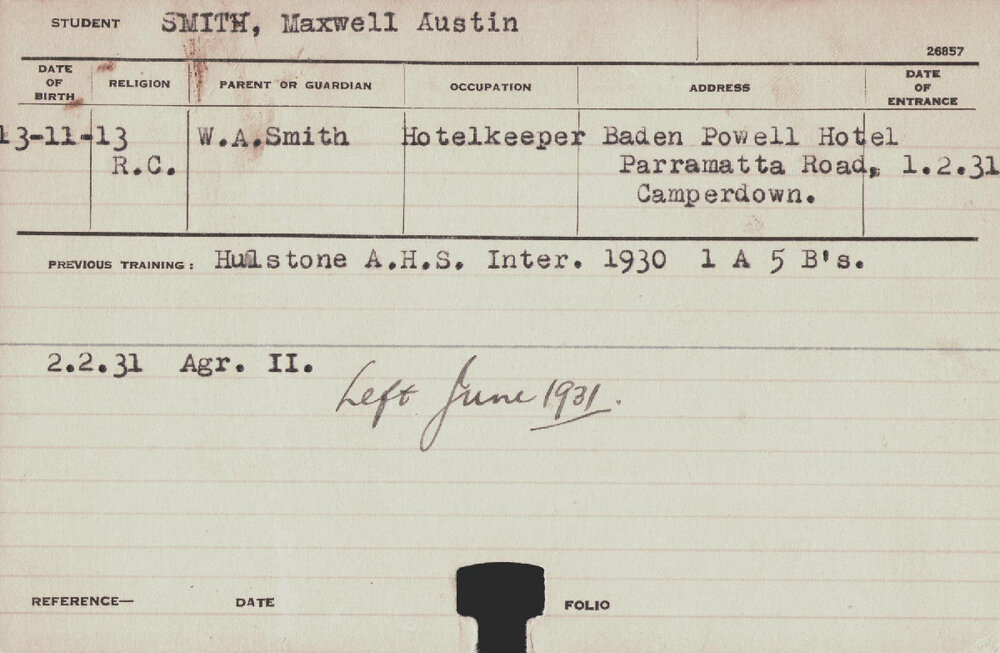 STUDENT SMITH, Maxwell Austin
26857
DATE OF BIRTH RELIGION PARENT OR GUARDIAN OCCUPATION ADDRESS DATE OF ENTRANCE
13-11-13 W.A.Smith Hotelkeeper Baden Powell Hotel
R.C. Parramatta Road, 1.2.31
Camperdown.
PREVIOUS TRAINING: Hulstone A.H.S. Inter. 1930 1 A 5 B's.
2.2.31 Agr. II.
Left June 1931.
REFERENCE— DATE FOLIO